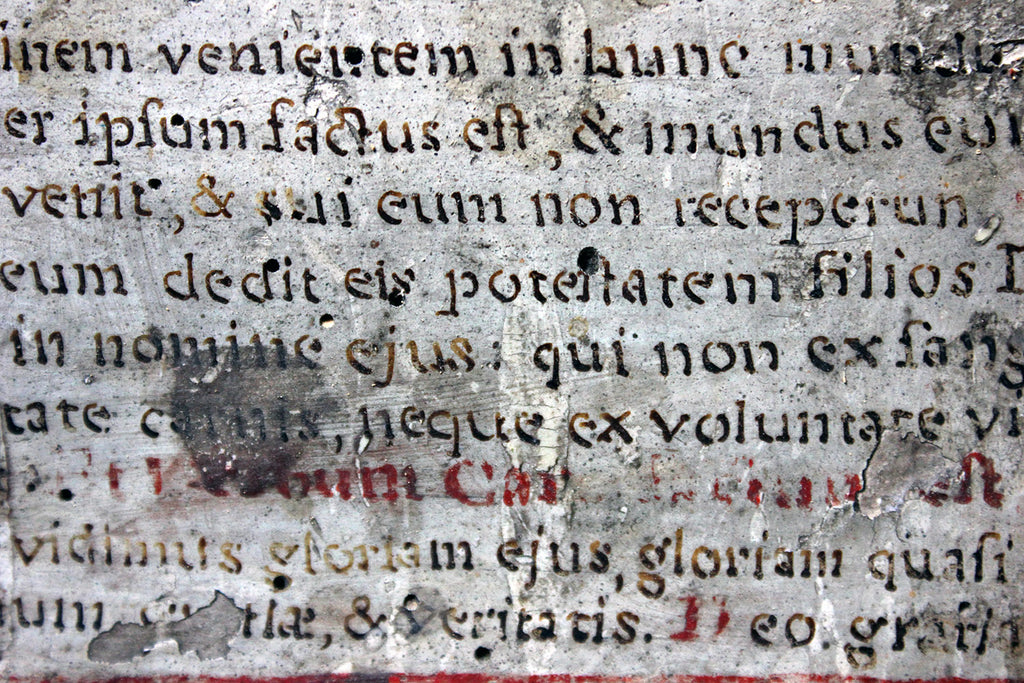 inem venientem in hunc mundu
er ipſum factus eſt, & mundus eum
venit, & sui eum non receperun
eum dedit eis poteſtatem filios D
in nomine ejus: qui non ex ſang
tate carnis, neque ex voluntate vi
Et Verbum Car factum eſt
vidimus gloriam ejus, gloriam quaſi
tiæ, & veritatis. Deo gratia